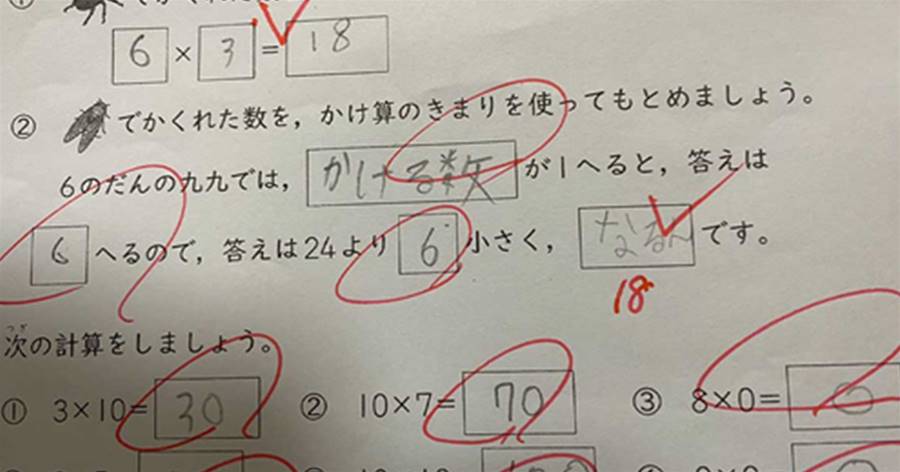 ① でかくれた
6 × 3 = 18
② でかくれた数を，かけ算のきまりを使ってもとめましょう。
6のだんの九九では，かける数が1へると，答えは
6へるので，答えは24より6小さく，なるんです。
18
次の計算をしましょう。
① 3×10=30 ② 10×7=70 ③ 8×0=0